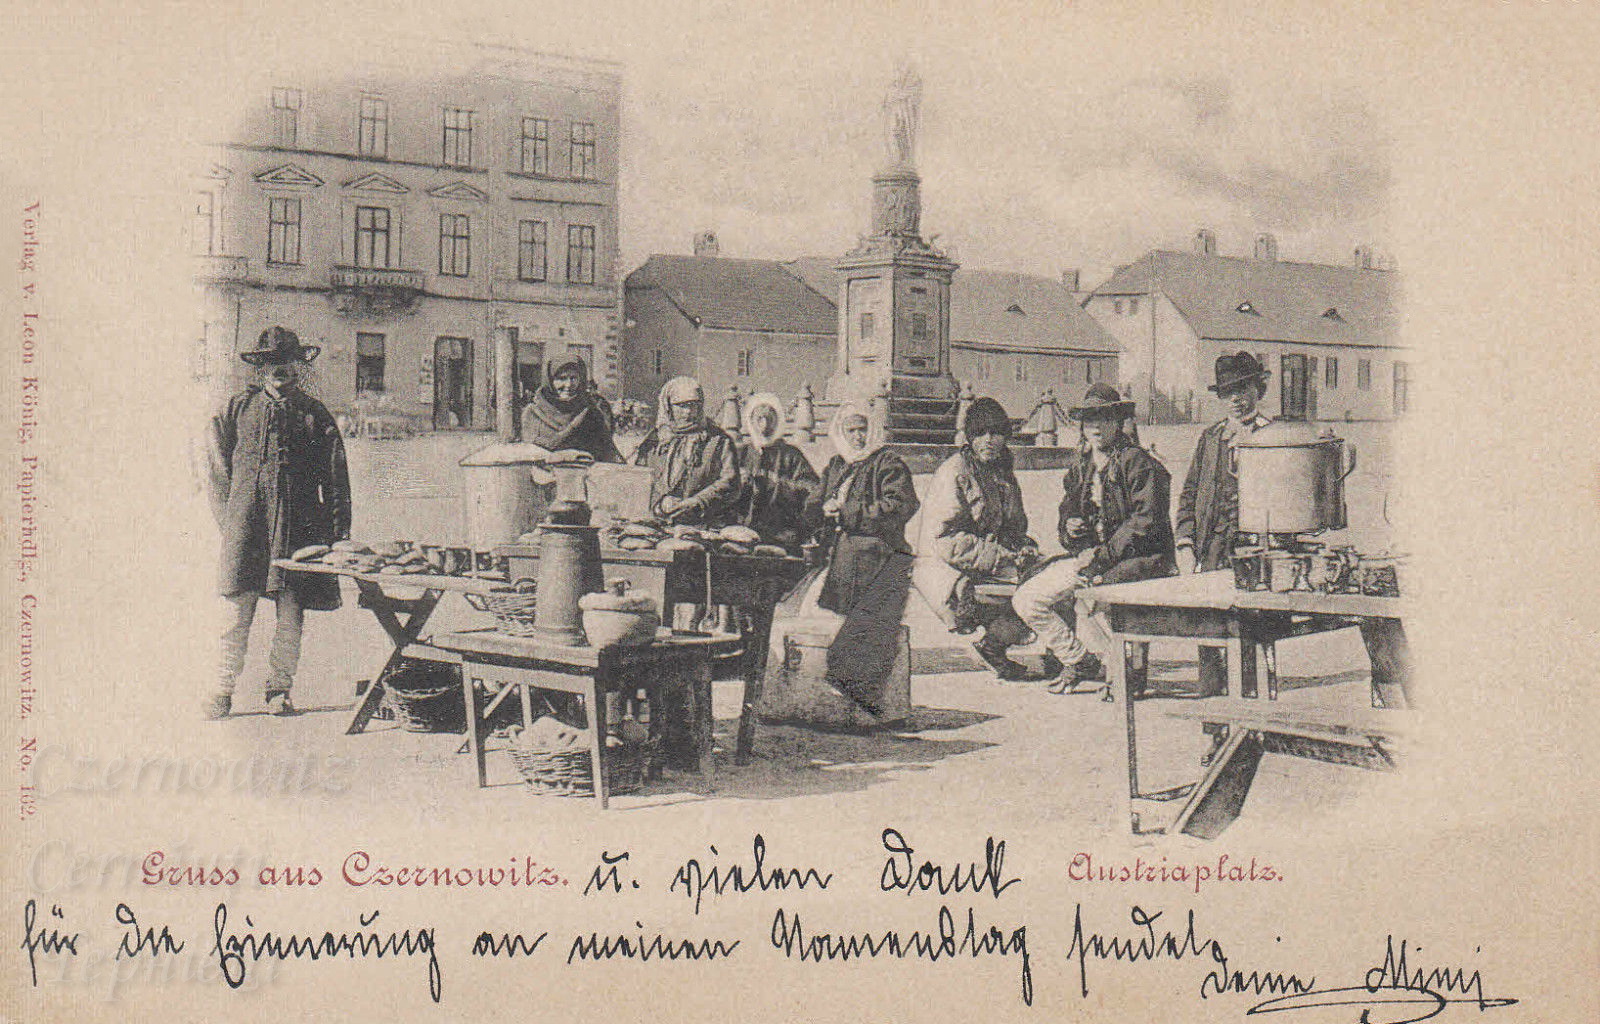 Verlag v. Leon König, Papierhdlg., Czernowitz. No. 162.
Gruss aus Czernowitz. u. vielen Dank Austriaplatz.
für die Erinnerung an meinen Namenstag sendet
Deine Mimi
Czernowitz
Cernăuți
Чернівці